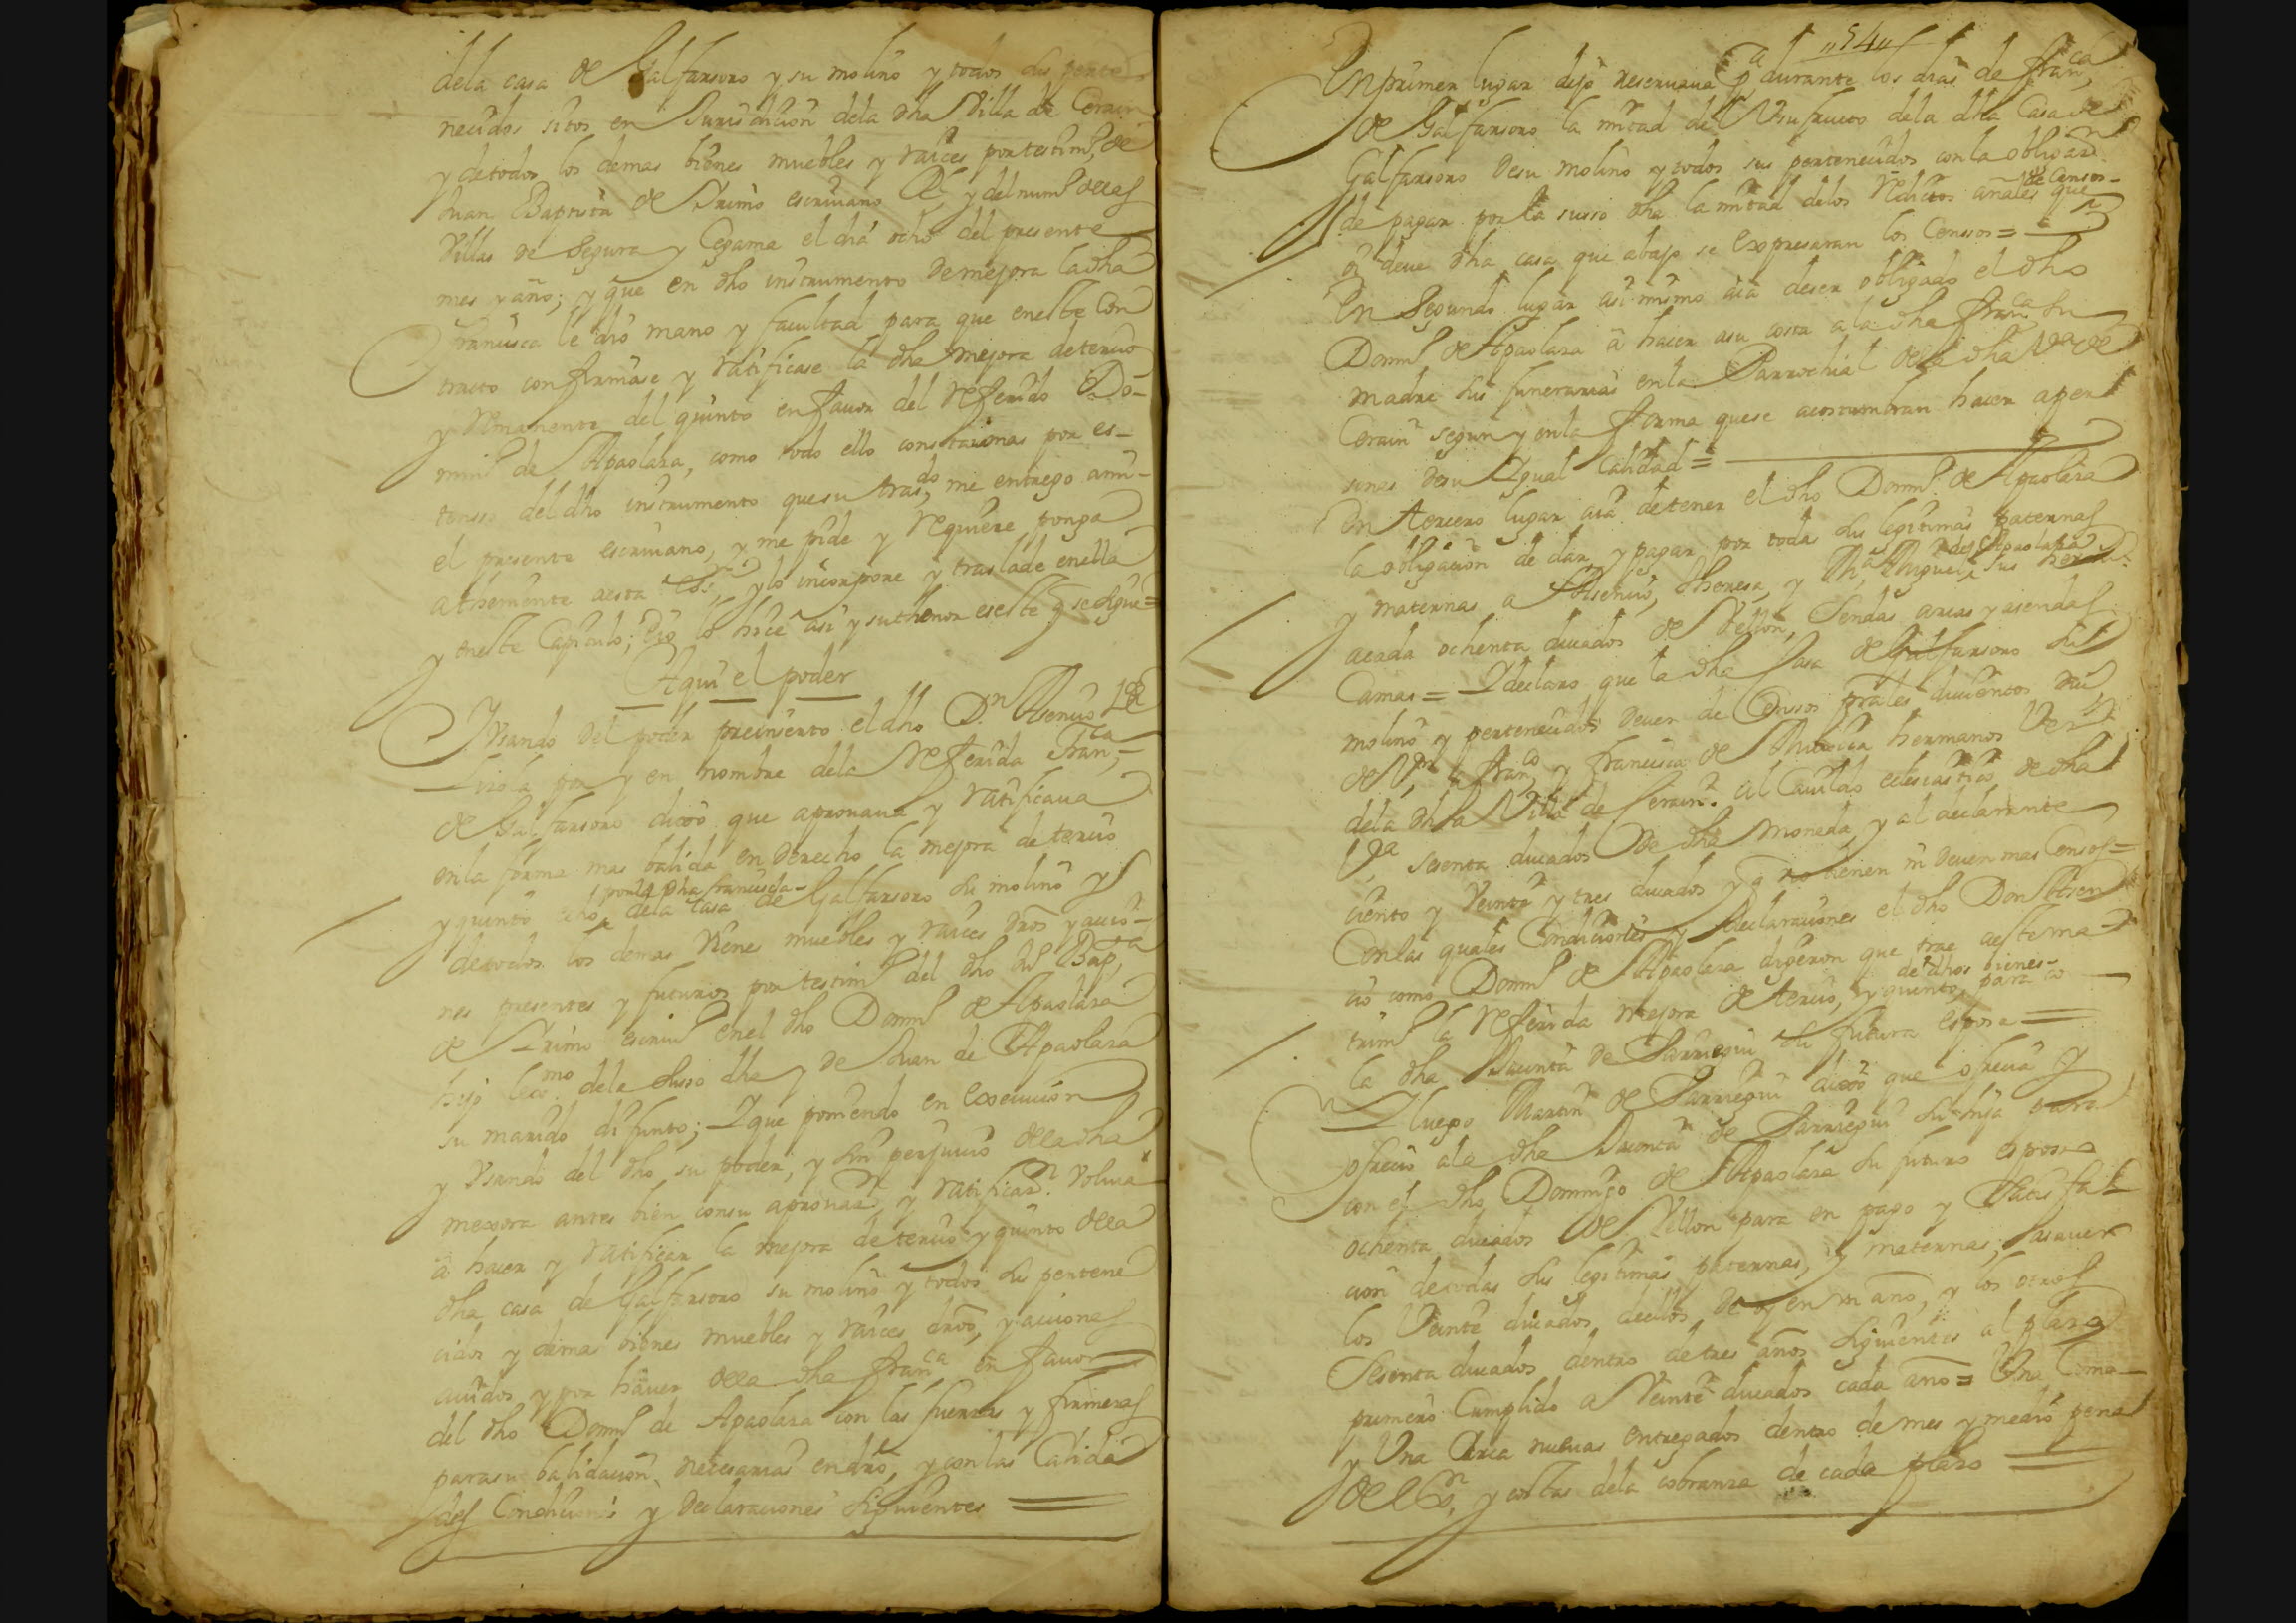 dela casa de Galfarsoro y su molino y todos sus perte
necidos sitos en Jurisdicion dela dha Villa de Cerain
y detodos los demas bienes muebles y raices por testimo, de
Juan Baptista de Irimo escriuano Rl, y del numo dellas
Villas de Segura y Cegama el dia ocho del presente
mes y año; y que en dho instrumento de mejora la dha
Francisca le dio mano y facultad para que eneste Con
tracto confirmase y ratificase la dha mejora detercio
y remanente del quinto en fauor del referido Do-
mino de Apaolaza, como todo ello consta por es-
tenso del dho instrumento que su trasdo, me entrego ami-
el presente escriuano, y me pide y requiere ponga
ylo incorpore y traslade enella
y eneste Capitulo; E yo lo hice asi y suthenor es este q se sigue=
Aqui el poder
Usando del poder preinserto el dho Dn Asencio de
por y en nombre dela referida Franca,
de Galfarsoro dixo que aprouaua y ratificaua
enla forma mas balida en derecho la mejora de tercio
por la dha francisca-
y quinto echo dela Casa de Galfarsoro su molino y
detodos los demas bienes muebles y raices dros y accio-
nes presentes y futuros por testimo del dho Jn Bapta
de Irimo escriuo enel dho Domino de Apaolaza
hijo lexmo dela susso dha y de Juan de Apaolaza
su marido difunto; I que poniendo en execucion
y Usando del dho su poder, y sin perjuicio dela dha
mexora antes bien consu aprouaon y ratificaon voluia
à hacer y ratificar la mejora de tercio y quinto dela
dha casa de Galfarsoro su molino y todos sus pertene
cidos y demas bienes muebles y raices dros, y acciones
auidos y por hauer dela dha Franca en fauor
del dho Domino de Apaolaza con las fuerzas y firmezas
parasu balidacion necesarias endro, y con las Calida
des Condiciones y declaraciones siguientes =
"54"
Enprimer lugar dejo reseruaua pa durante los dias de franca,
de Galfarsoro la mitad del Usufructo dela dha Casa de
Galfarsoro desu molino y todos sus pertenecidos conla obligaon
de Censos-
de pagar por la susso dha la mitad delos reditos añales que
deue dha casa que abajo se expresaran los Censsos=
En Segundo lugar asi mismo aia deser obligado el dho
Domino de Apaolaza à hacer asu costa ala dha franca su
madre sus funerarias enla Parrochial dela dha Va de
Cerain segun y enla forma quese acostumbran hacer a per
sonas desu Igual Calidad=
En tercero lugar aia detener el dho Domino de Apaolaza
la obligacion de dar y pagar por toda sus legitimas paternas
de Apaolaza
y maternas a Asencio, Theresa, y Ma Miguel sus hermos
acada ochenta ducados de Vellon, Sendas arcas y asendas
Camas= I declaro que la dha Casa de Galfarsoro su
molino y pertenecidos deuen de Censos prales ducientos du,
de Von a franco, y francisca de hermanos Vezos
dela dha Villa de Cerain. al Cauildo eclesiastico de dha
Va sesenta ducados de dha moneda, y al declarante
ciento y Veinte y tres ducados y q no tienen ni deuen mas Censos=
Conlas quales Condiciones y declaraciones el dho Don Asen
cio como Domino de Apaolaza dijeron que trae aeste ma-
de dhos bienes-
trimo la referida mejora de tercio, y quinto, para co
la dha Jacinta de Larrregui su futura esposa=
I luego Martin de Larrregui dixo que ofrecia y
ofrecio ala dha Jacinta de Larrregui su hija para
con el dho Domingo de Apaolaza su futuro esposo
ochenta ducados de Vellon para en pago y satisfa
cion detodas sus legitimas paternas, y maternas, asauer
los Veinte ducados, dellos de oy en un año, y los otros
Sesenta ducados dentro de tres años siguientes al plazo
primero Cumplido a Veinte ducados cada año= Una Cama-
y Una Arca nueuas entregados dentro de mes y medio pena
de exon, y costas dela cobranza de cada plazo =